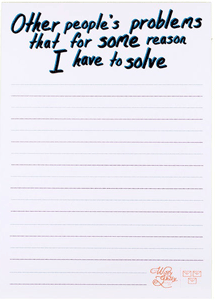 Other people's problems
that for some reason
I have to solve